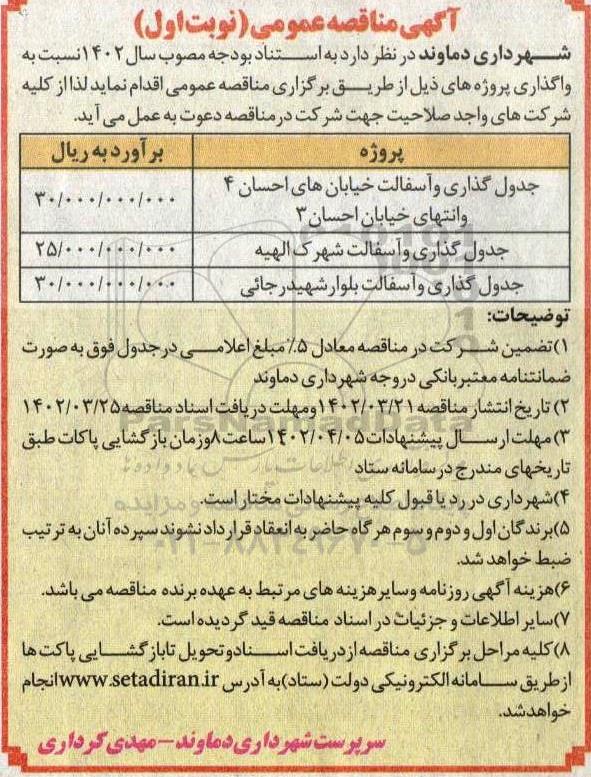 آگهی مناقصه عمومی (نوبت اول)
شهرداری دماوند در نظر دارد به استناد بودجه مصوب سال ۱۴۰۲ نسبت به
واگذاری پروژه های ذیل از طریق برگزاری مناقصه عمومی اقدام نماید لذا از کلیه
شرکت های واجد صلاحیت جهت شرکت در مناقصه دعوت به عمل می آید.
پروژه برآورد به ریال
جدول گذاری و آسفالت خیابان های احسان ۴
وانتهای خیابان احسان ۳ ۳۰/۰۰۰/۰۰۰/۰۰۰
جدول گذاری و آسفالت شهرک الهیه ۲۵/۰۰۰/۰۰۰/۰۰۰
جدول گذاری و آسفالت بلوار شهید رجائی ۳۰/۰۰۰/۰۰۰/۰۰۰
توضیحات:
۱) تضمین شرکت در مناقصه معادل ۵٪ مبلغ اعلامی در جدول فوق به صورت
ضمانتنامه معتبر بانکی در وجه شهرداری دماوند
۲) تاریخ انتشار مناقصه ۱۴۰۲/۰۳/۲۱ ومهلت دریافت اسناد مناقصه ۱۴۰۲/۰۳/۲۵
۳) مهلت ارسال پیشنهادات ۱۴۰۲/۰۴/۰۵ ساعت ۸ وزمان بازگشایی پاکات طبق
تاریخهای مندرج در سامانه ستاد
۴) شهرداری در رد یا قبول کلیه پیشنهادات مختار است.
۵) برندگان اول و دوم و سوم هرگاه حاضر به انعقاد قرارداد نشوند سپرده آنان به ترتیب
ضبط خواهد شد.
۶) هزینه آگهی روزنامه وسایر هزینه های مرتبط به عهده برنده مناقصه می باشد.
۷) سایر اطلاعات و جزئیات در اسناد مناقصه قید گردیده است.
۸) کلیه مراحل برگزاری مناقصه از دریافت اسناد و تحویل تا بازگشایی پاکت ها
از طریق سامانه الکترونیکی دولت (ستاد) به آدرس www.setadiran.ir انجام
خواهد شد.
سرپرست شهرداری دماوند – مهدی کرداری
ParsNamadData